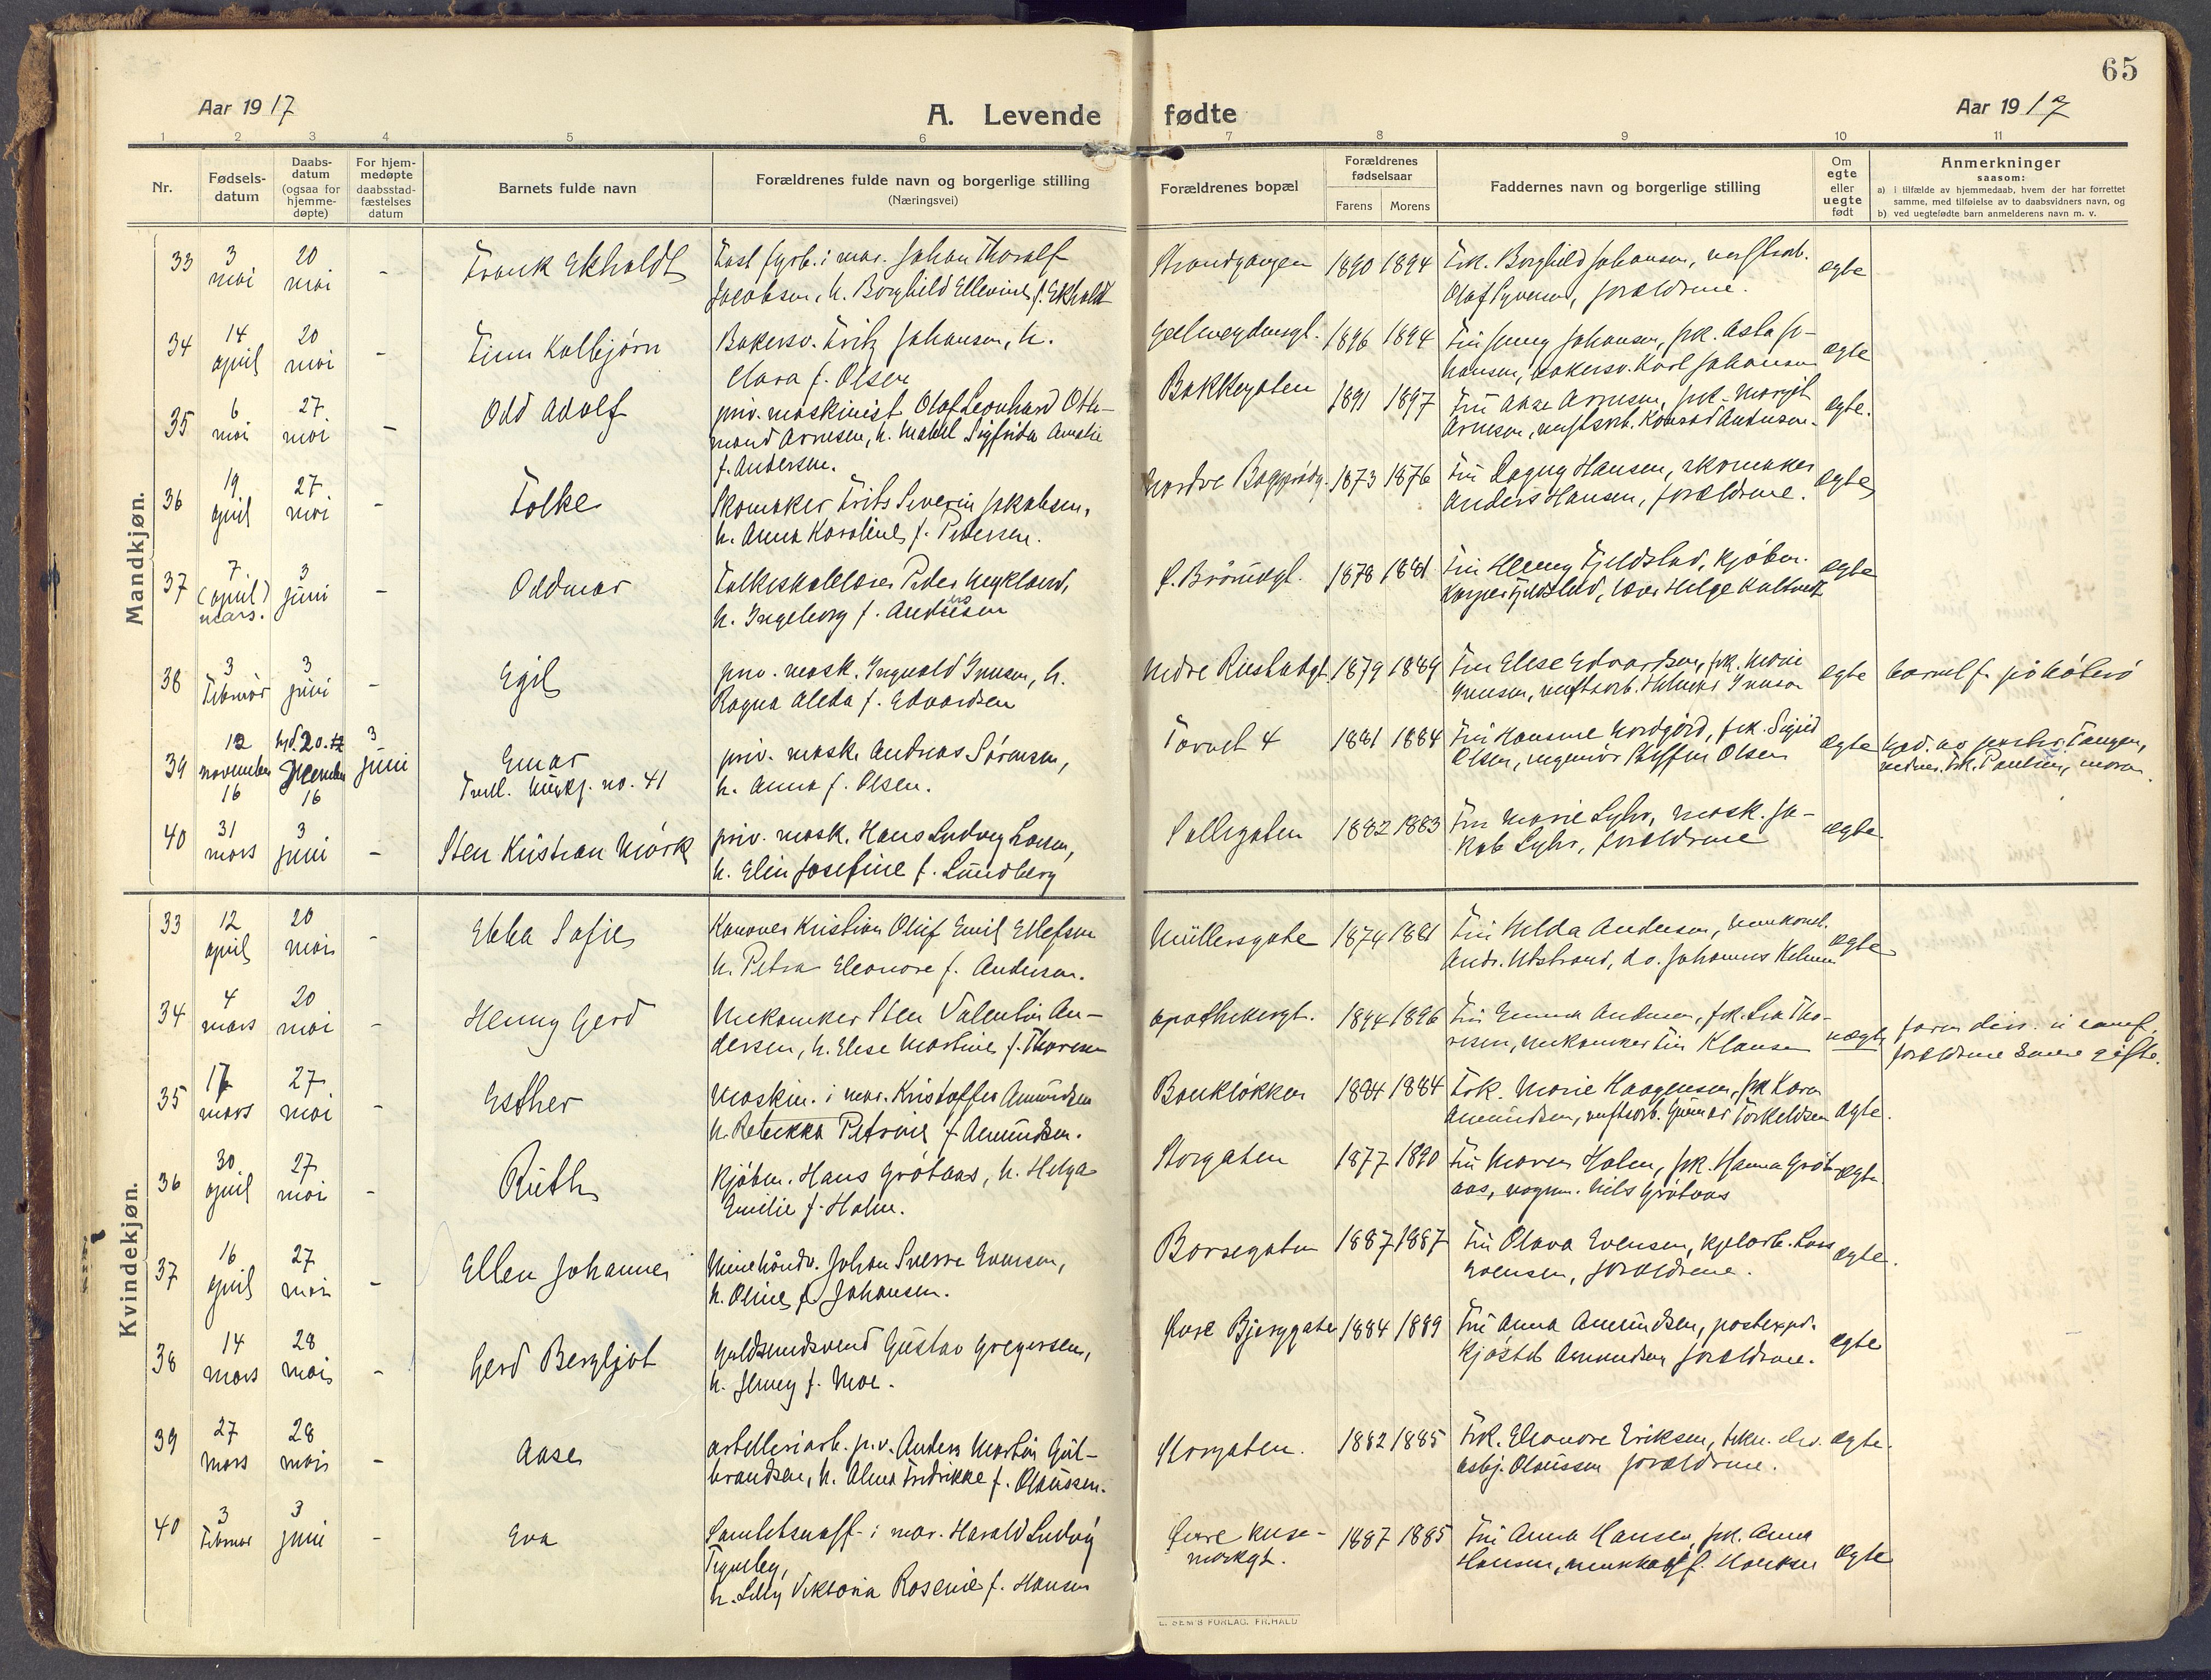 65
Aar 1917
A. Levende fødte
Aar 1917
1 2 3 4 5 6 7 8 9 10 11
Nr.
Fødsels-
datum
Daabs-
datum
(ogsaa for
hjemme-
døpte)
For hjem-
medøpte
daabsstad-
fæstelses
datum
Barnets fulde navn
Forældrenes fulde navn og borgerlige stilling
(Næringsvei)
Forældrenes bopæl
Forældrenes
fødselsaar
Farens Morens
Faddernes navn og borgerlige stilling
Om
egte
eller
uegte
født
Anmerkninger
saasom:
a) i tilfælde av hjemmedaab, hvem der har forrettet
samme, med tilføielse av to daabsvidners navn, og
b) ved uegtefødte barn anmelderens navn m. v.
Mandkjøn.
33 3 mai 20 mai - Frank Ekholdt
Johan Thoralf
Jacobsen, h. Borghild Ellevine f. Ekholdt
Strandgangen 1890 1894
Frk. Borghild Johansen,
Olaf Syversen, forældrene.
egte
34 14 april 20 mai - Finn Kolbjørn
Bakersv. Fritz Johansen, h.
Clara f. Olsen
1896 1894
Fru Jenny Johansen, frk. Asta Jo-
hansen, bakersv. Karl Johansen
egte
35 6 mai 27 mai - Odd Adolf
priv. maskinist Olaf Leonhard Oth-
mand Arnesen, h. Mabel Sigfrida Amalie
f. Andersen.
Bakkegaten 1891 1897
Fru Aase Arnesen, frk. Margit
Arnesen, verftsarb. Konrad Andersen.
egte.
36 19 april 27 mai - Folke
Skomaker Frits Severin Jakobsen,
h. Anna Karoline f. Petersen.
1873 1876
Fru Dagny Hansen, skomaker
Anders Hansen, forældrene.
egte
37 7 (april) mars. 3 juni - Oddmar
Folkeskolelærer Peder Nykland,
h. Ingeborg f. Andersen
1878 1881
Fru Henny Fjeldstad, kjøbm.
Kasper Fjeldstad, lærer Helge
egte
38 3 Februar 3 juni - Egil
priv. mask. Ingvald Iversen, h.
Ragna Aleda f. Edvardsen
1879 1889
Fru Elise Edvardsen, frk. Marie
Iversen, verftsarb. Iversen
egte
barnet f. på
39 12 november 16 hjd. 20. december 16 3 juni
Einar
Tvill. kvikj. no. 41
priv. mask. Andreas Sørensen,
h. Anna f. Olsen.
Torvet 4 1881 1884
Fru Hansine Nordgård, frk. Sigrid
Olsen, ingeniør Olsen
egte
Tangen,
40 31 mars 3 juni - Sten Kristian Mörk
priv. mask. Hans Ludvig Larsen,
h. Elin Josefine f. Lundberg
1882 1883
Fru Marie Lyhr, mask. Ja-
kob Lyhr, forældrene
egte
Kvindekjøn.
33 12 april 20 mai - Ebba Sofie
Kanoner Kristian Oluf Emil Ellefsen
h. Petra Eleonore f. Andersen.
Müllersgate 1874 1881
Fru Hilda Andersen,
Andr. Utstrand, do. Johannes
egte
34 4 mars 20 mai - Henny Gerd
Sten Valentin An-
dersen, h. Elise Martine f. Thoresen
Apothekergt. 1894 1896
Fru Emma Andersen, frk. Lea Tho-
resen, Klausen
uegte
forældrene senere gifte.
35 17 mars 27 mai - Esther
Maskin. i mar. Kristoffer Amundsen
h. Rebekka Petrine f. Amundsen.
Bankløkken 1884 1884
Frk. Marie Haagensen, frk. Karen
Amundsen, verftsarb. Gunnar Torkeldsen
egte.
36 30 april 27 mai - Ruth
Kjøbm. Hans Grötaas, h. Helga
Emilie f. Holm.
Storgaten 1877 1890
Fru Maren Holm, frk. Hanna Gröt-
aas, vognm. Nils Grötaas
egte.
37 16 april 27 mai - Ellen Johanne
Minehåndv. Johan Sverre Evensen,
h. Oline f. Johansen.
Borsegaten 1887 1887
Fru Olava Evensen, Lars
Evensen, forældrene.
egte.
38 14 mars 28 mai - Gerd Bergljot
Guldsmedsvend Gustav Gregersen,
h. Jenny f. Moe.
Øvre Bjerggate 1884 1889
Fru Anna Amundsen, postexpd.
Kjøstel Amundsen forældrene.
egte
39 27 mars 28 mai - Aase
artelleriarb. p.v. Anders Martin Gul-
brandsen, h. Alma Fredrikke f. Olaussen.
Storgaten. 1882 1885
Frk. Eleonore Eriksen, tekn. elev.
Asbj. Olaussen forældrene.
egte.
40 3 Februar 3 juni - Eva
i mar. Harald Ludvig
h. Lilly Viktoria Rosenie f. Hansen
1887 1885
Fru Anna Hansen, frk. Anna
Hansen,
egte
E. SEM'S FORLAG. FR.HALD